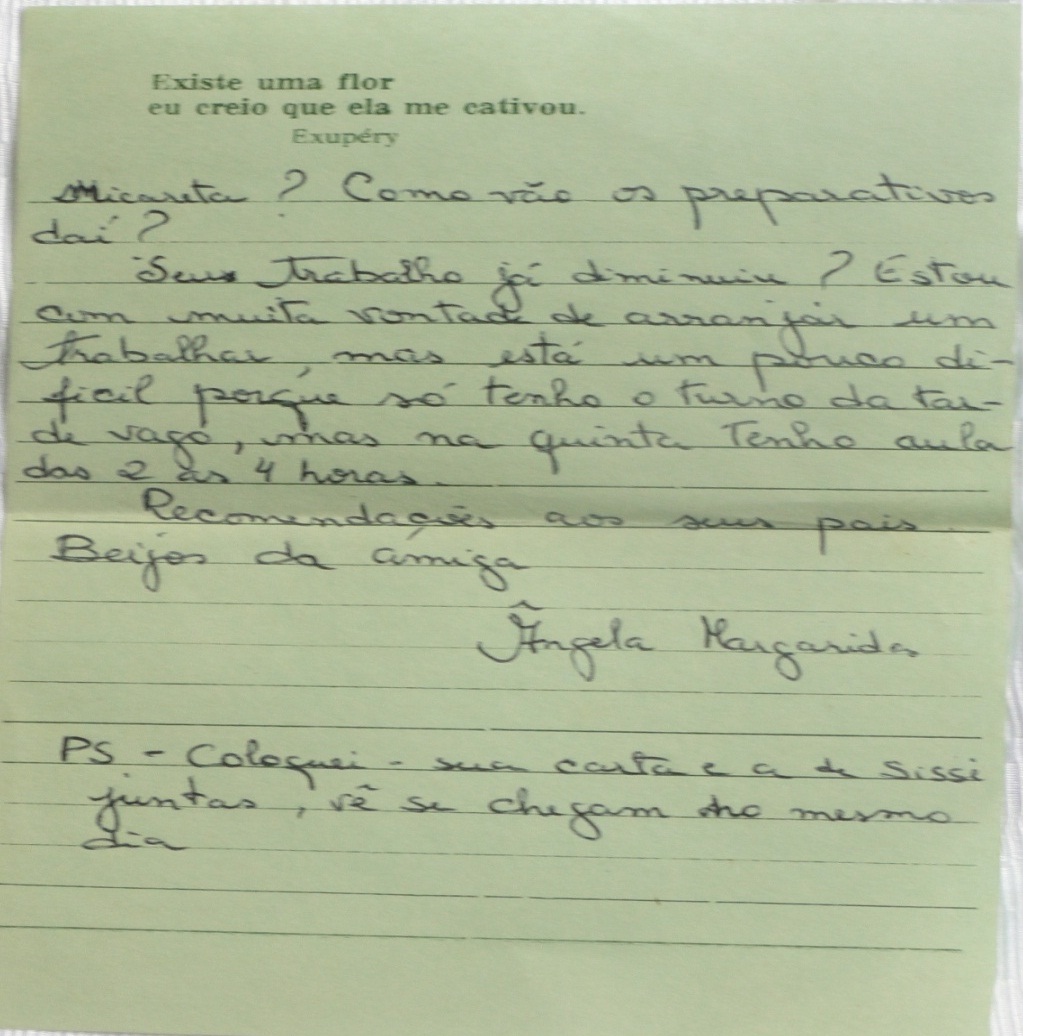 Existe uma flor
eu creio que ela me cativou.
Exupéry
Micareta ? Como vão os preparativos
daí ?
Seu trabalho já diminuiu ? Estou
com muita vontade de arranjar um
trabalhar, mas está um pouco di-
ficil porque só tenho o turno da tar-
de vago, mas na quinta tenho aula
das 2 às 4 horas.
Recomendações aos seus pais.
Beijos da amiga
Ângela Margarida
PS - Coloquei - sua carta e a de Sissi
juntas, vê se chegam no mesmo
dia